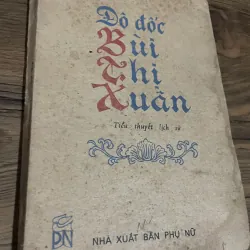 Đô đốc
Bùi
Thị
Xuân
Tiểu thuyết lịch sử
PN
NHÀ XUẤT BẢN PHỤ NỮ